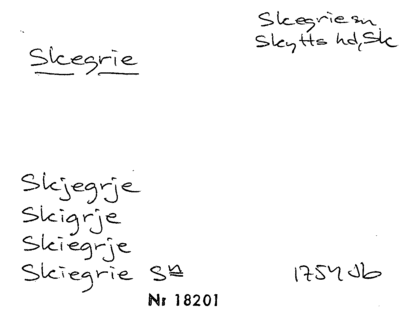 Skegrie sn
Skytts hd, Sk
Skegrie
Skjegrje
Skigrje
Skiegrje
Skiegrie Sn 1754 Jb
Nr 18201